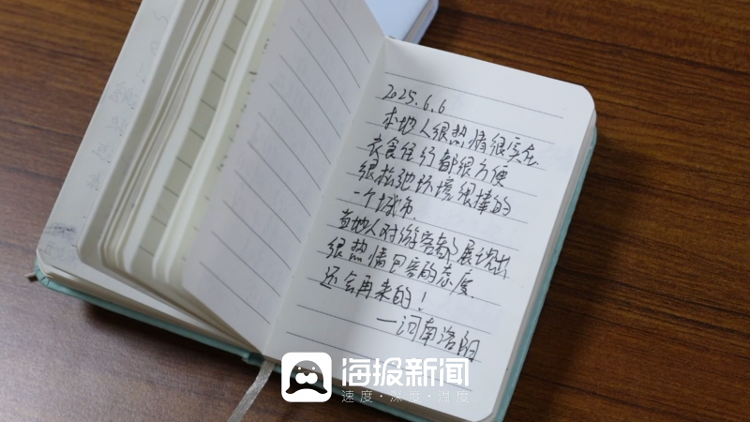 2025.6.6
本地人很热情很实在
衣食住行都很方便
很松弛环境很棒的
一个城市.
当地人对游客都展现出
很热情包容的态度.
还会再来的！
—河南洛阳
海报新闻
速度·深度·温度